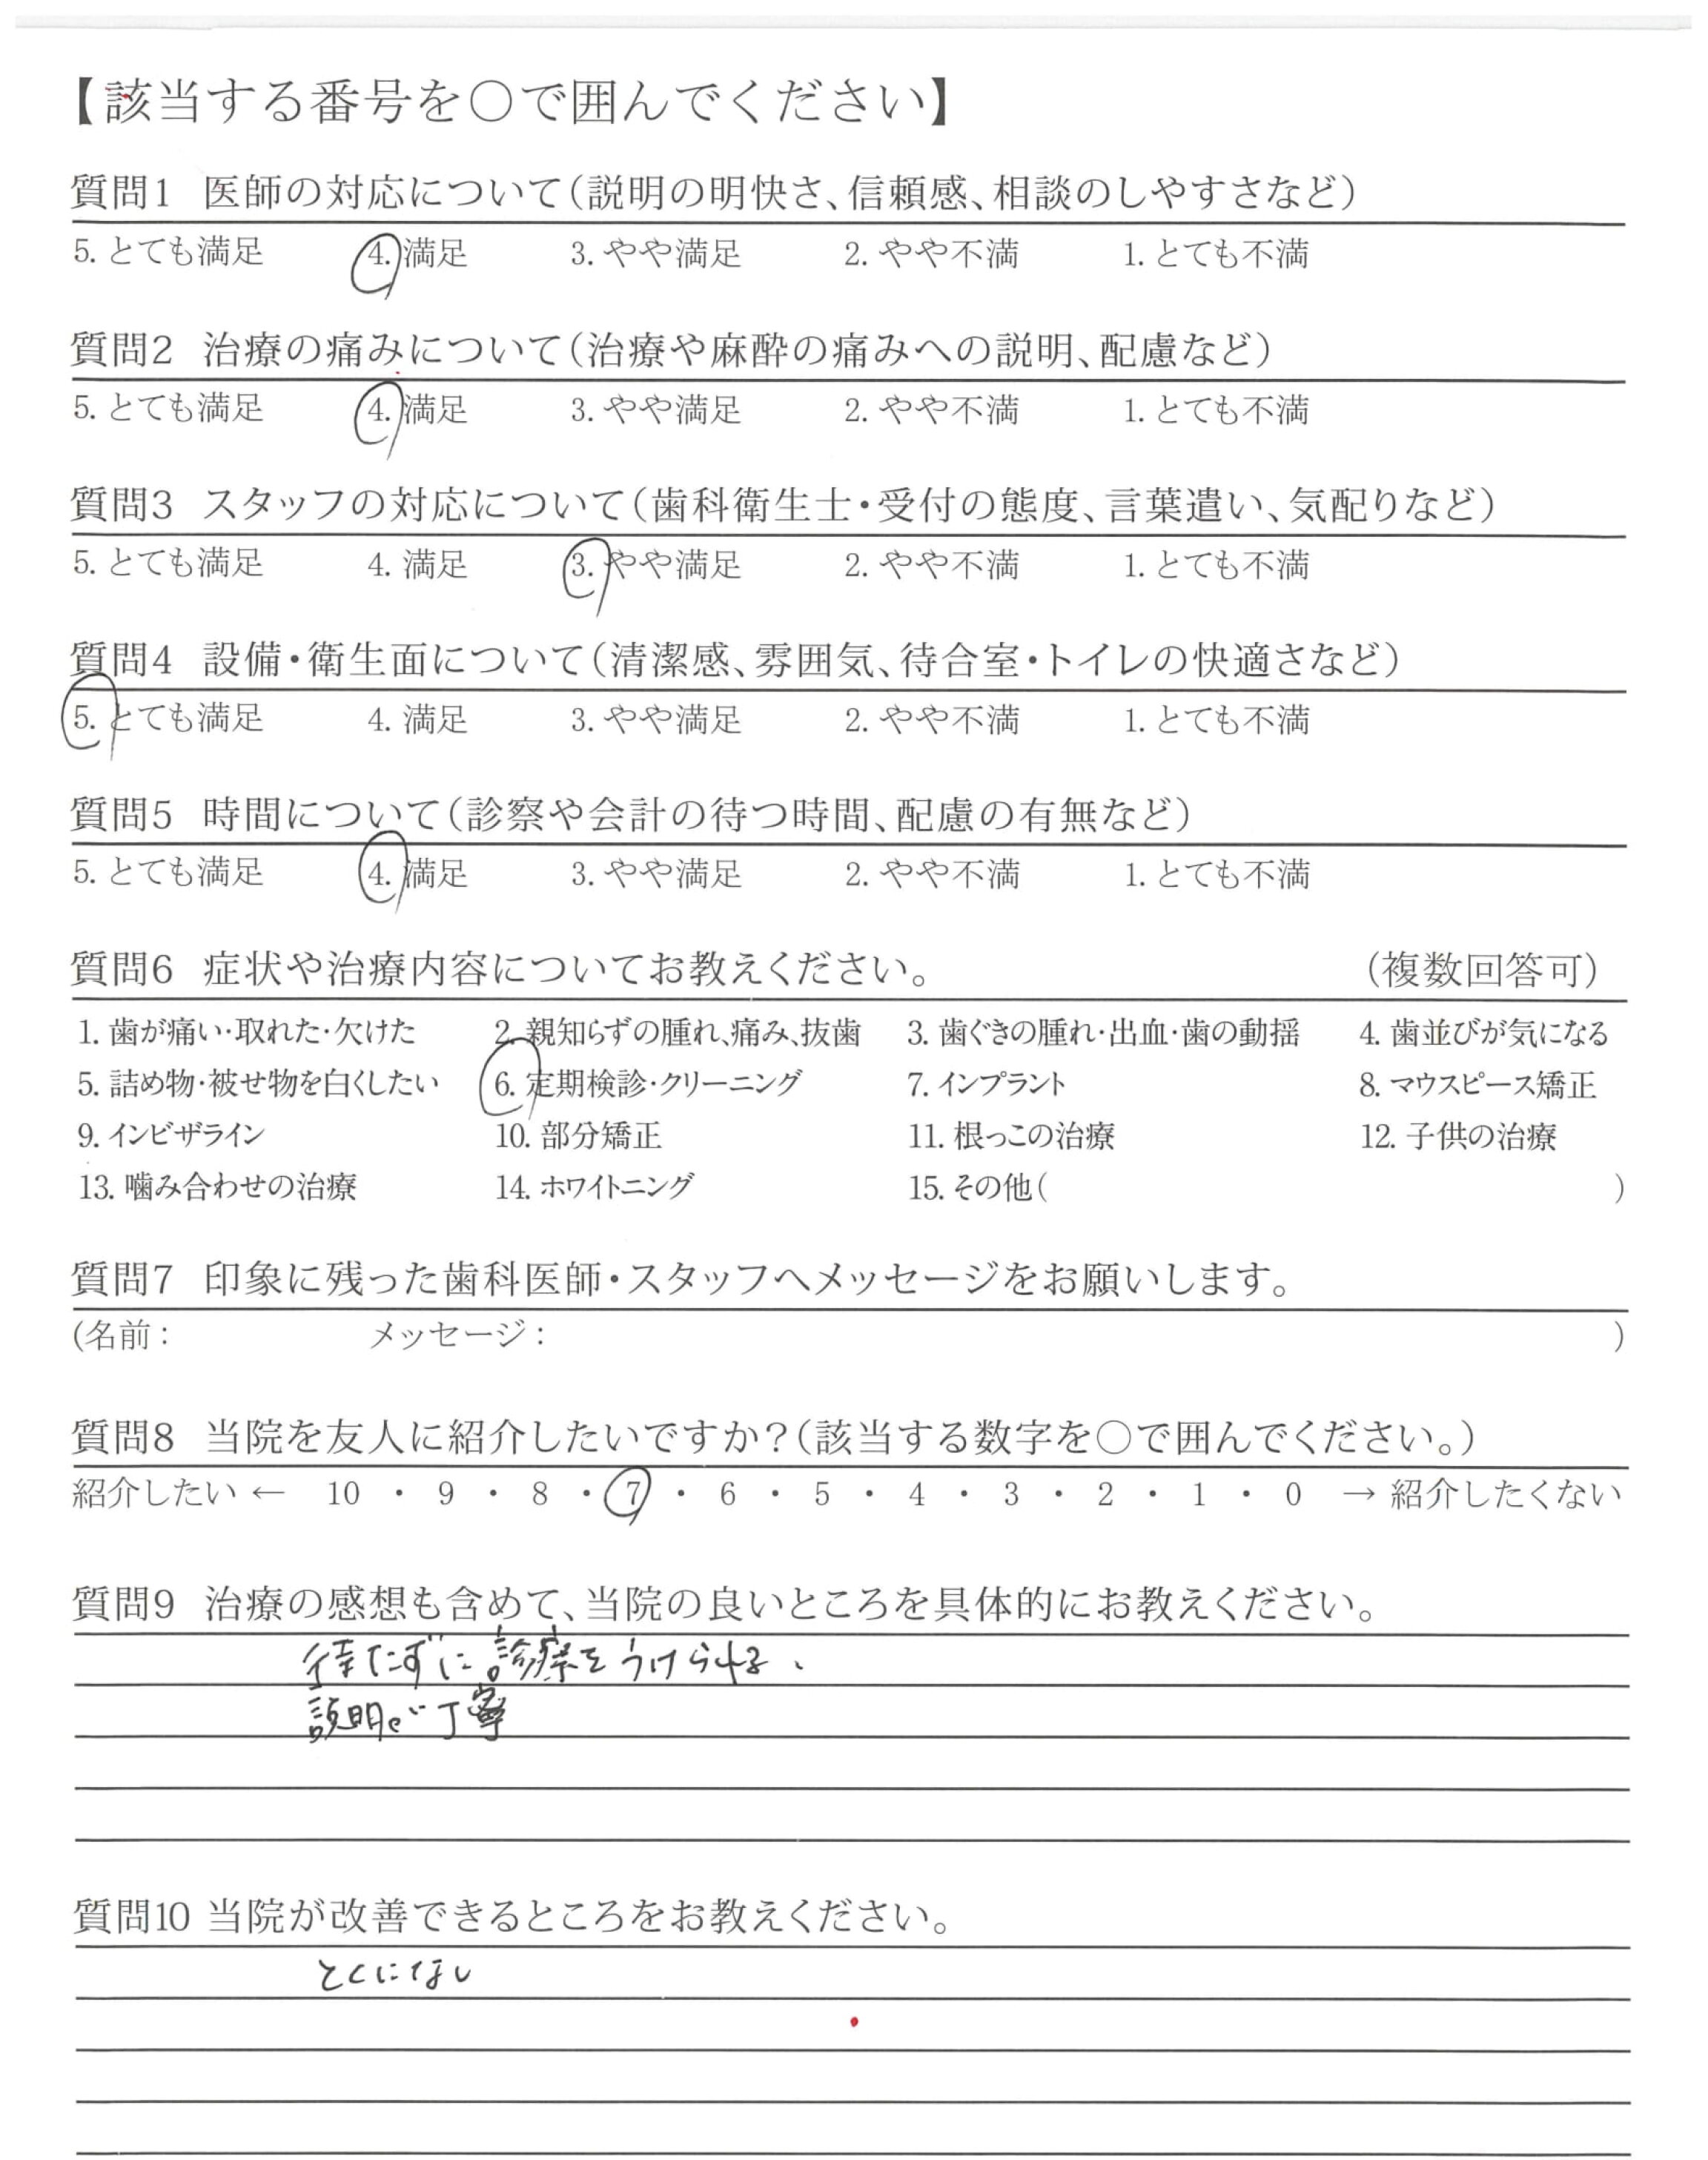 【該当する番号を○で囲んでください】
質問1 医師の対応について(説明の明快さ、信頼感、相談のしやすさなど)
5. とても満足 4. 満足 3. やや満足 2. やや不満 1. とても不満
質問2 治療の痛みについて(治療や麻酔の痛みへの説明、配慮など)
5. とても満足 4. 満足 3. やや満足 2. やや不満 1. とても不満
質問3 スタッフの対応について(歯科衛生士・受付の態度、言葉遣い、気配りなど)
5. とても満足 4. 満足 3. やや満足 2. やや不満 1. とても不満
質問4 設備・衛生面について(清潔感、雰囲気、待合室・トイレの快適さなど)
5. とても満足 4. 満足 3. やや満足 2. やや不満 1. とても不満
質問5 時間について(診察や会計の待つ時間、配慮の有無など)
5. とても満足 4. 満足 3. やや満足 2. やや不満 1. とても不満
質問6 症状や治療内容についてお教えください。 (複数回答可)
1. 歯が痛い・取れた・欠けた 2. 親知らずの腫れ、痛み、抜歯 3. 歯ぐきの腫れ・出血・歯の動揺 4. 歯並びが気になる
5. 詰め物・被せ物を白くしたい 6. 定期検診・クリーニング 7. インプラント 8. マウスピース矯正
9. インビザライン 10. 部分矯正 11. 根っこの治療 12. 子供の治療
13. 噛み合わせの治療 14. ホワイトニング 15. その他( )
質問7 印象に残った歯科医師・スタッフへメッセージをお願いします。
(名前: メッセージ: )
質問8 当院を友人に紹介したいですか?(該当する数字を○で囲んでください。)
紹介したい ← 10 ・ 9 ・ 8 ・ 7 ・ 6 ・ 5 ・ 4 ・ 3 ・ 2 ・ 1 ・ 0 → 紹介したくない
質問9 治療の感想も含めて、当院の良いところを具体的にお教えください。
待たずに診療をうけられる、
説明が丁寧
質問10 当院が改善できるところをお教えください。
とくになし